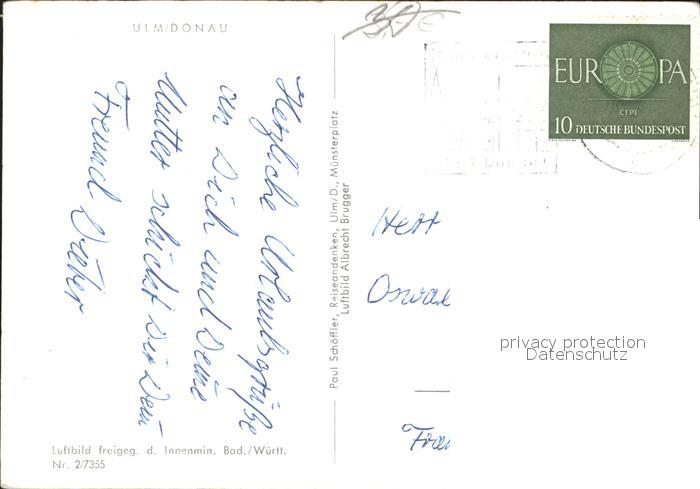 ULM/DONAU
Herzliche Urlaubsgrüße
an Dich und Deine
Mutter schickt Dir Dein
Freund Dieter
Luftbild freigeg. d. Innenmin. Bad./Württ.
Nr. 2/7355
Paul Schöffler, Reiseandenken, Ulm/D., Münsterplatz
Luftbild Albrecht Brugger
EUROPA
CEPT
10 DEUTSCHE BUNDESPOST
Herr
privacy protection
Datenschutz